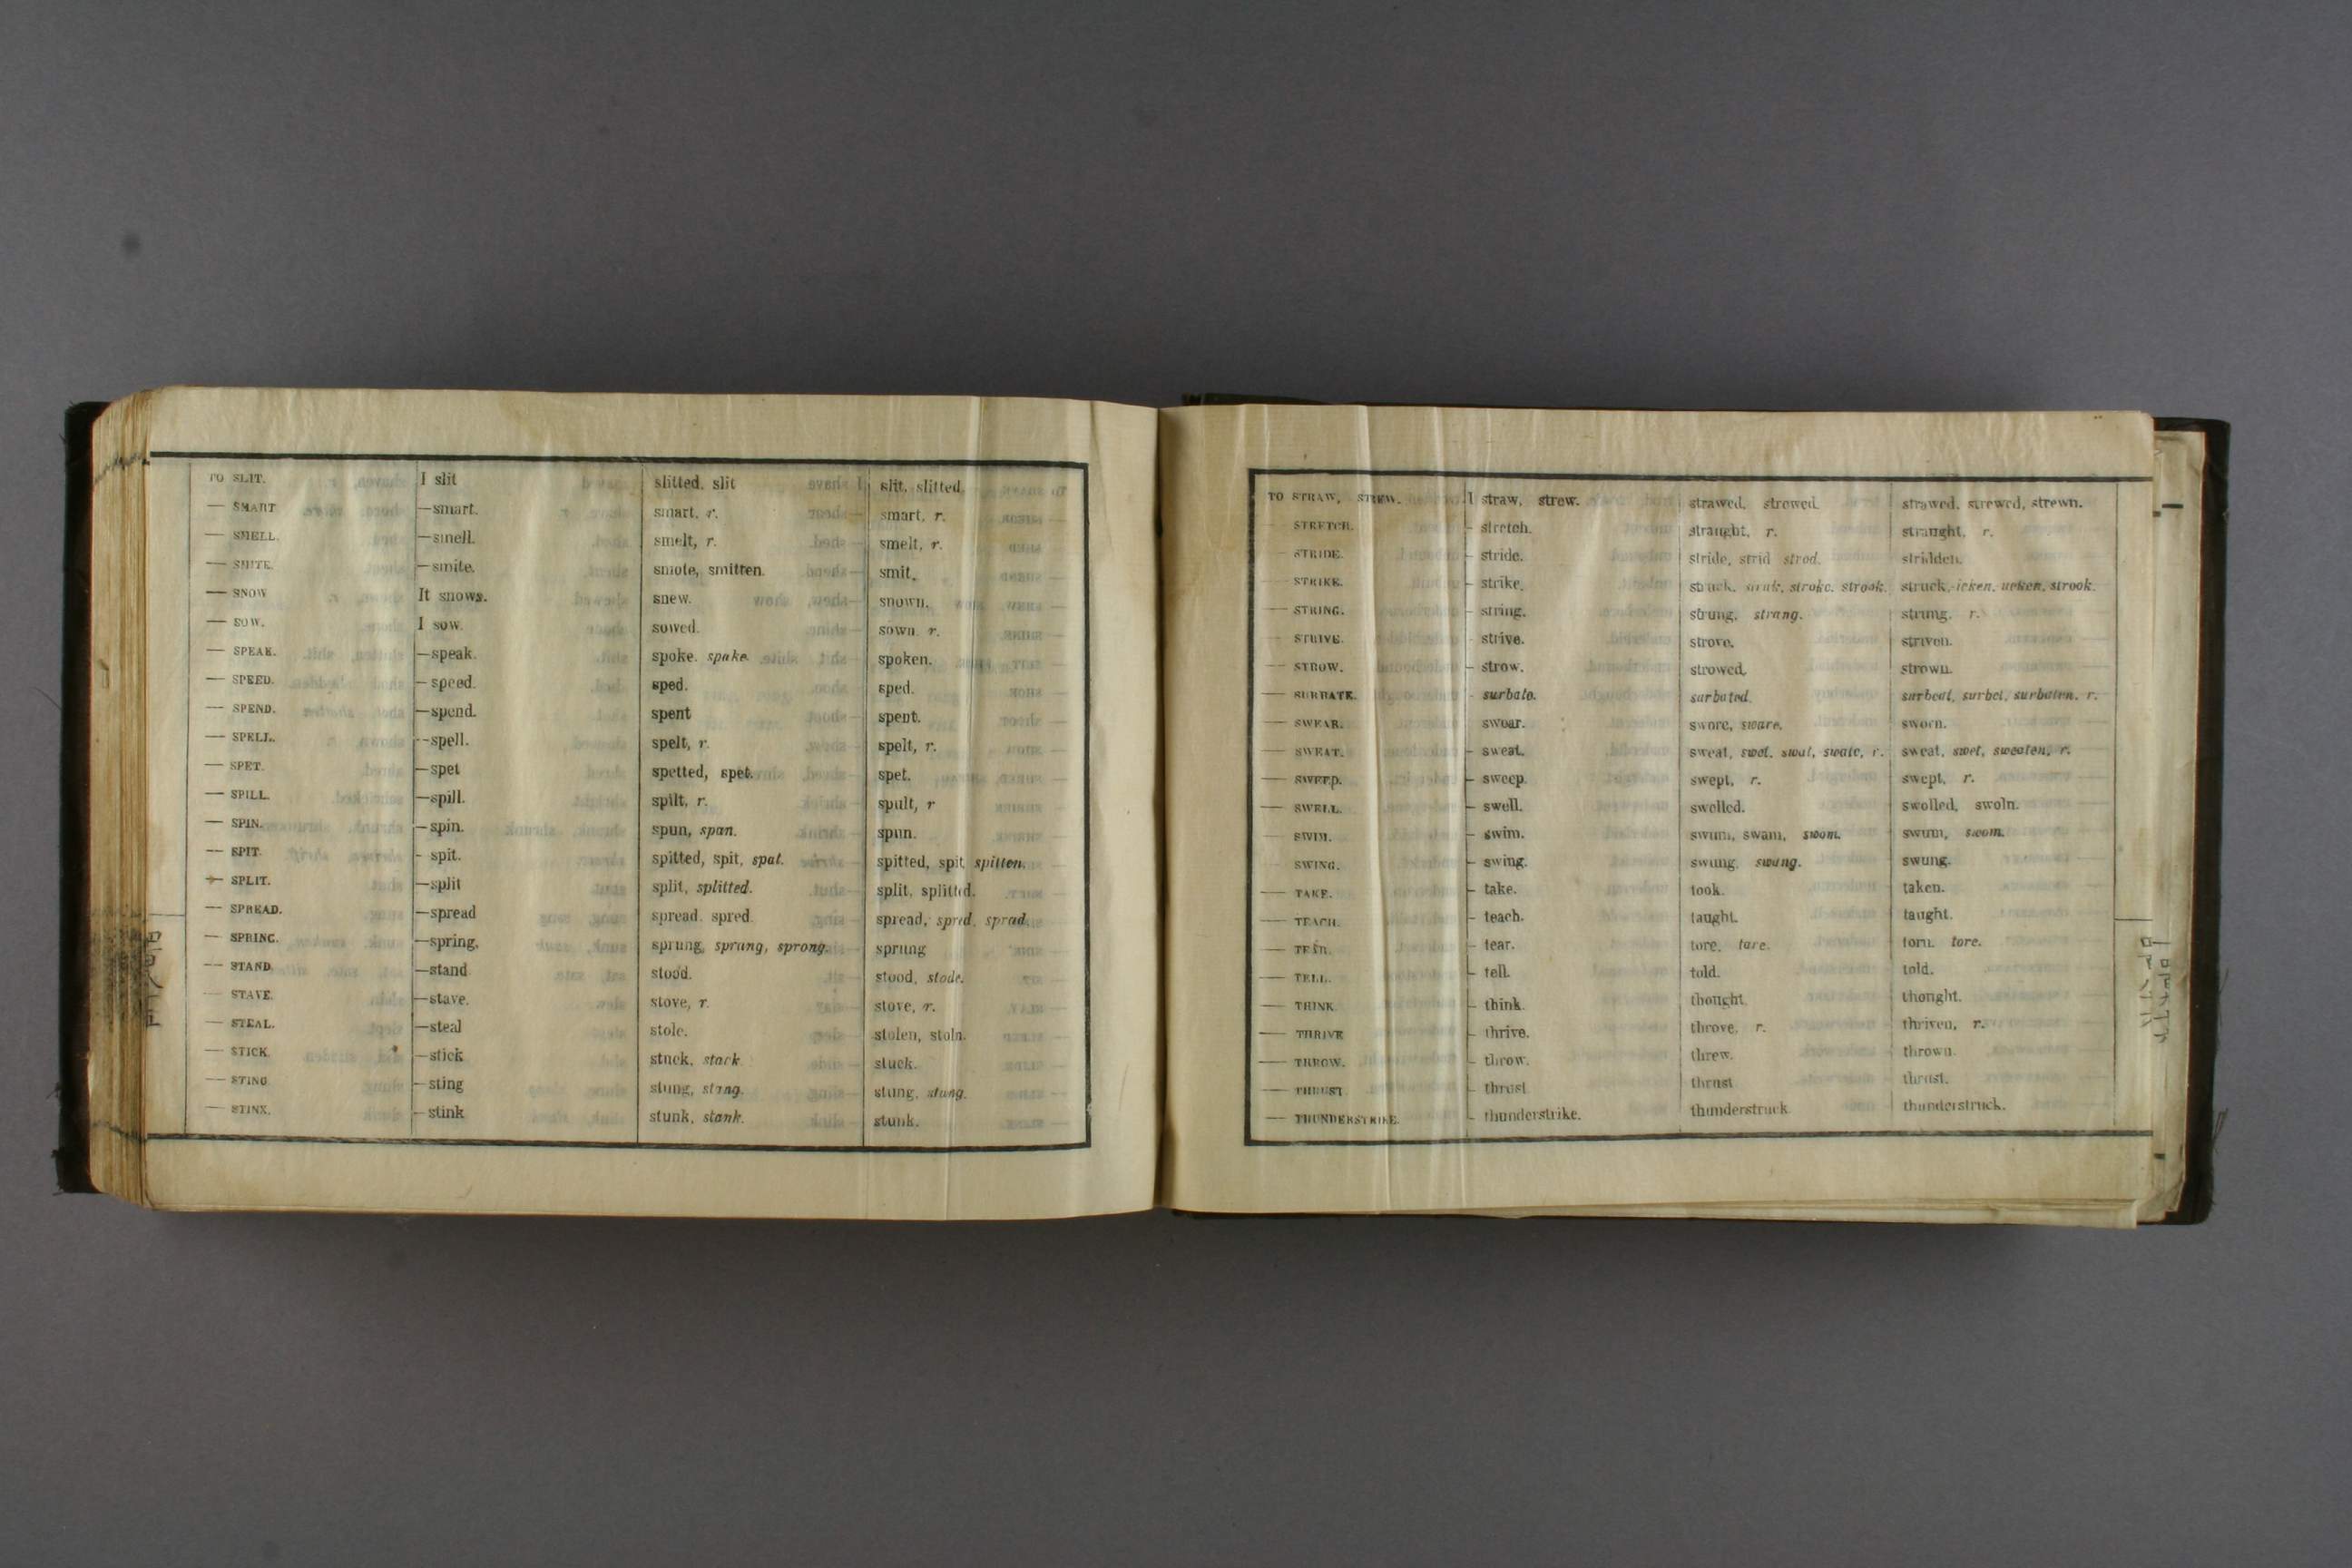 TO SLIT. I slit slitted. slit slit, slitted.
— SMART —smart. smart, r. smart, r.
— SMELL. —smell. smelt, r. smelt, r.
— SMITE. —smite. smote, smitten. smit.
— SNOW It snows. snew. snown.
— SOW. I sow. sowed. sown r.
— SPEAK. —speak. spoke. spake. spoken.
— SPEED. —speed. sped. sped.
— SPEND. —spend. spent spent.
— SPELL. —spell. spelt, r. spelt, r.
— SPET. —spet spetted, spet. spet.
— SPILL. —spill. spilt, r. spult, r
— SPIN. —spin. spun, span. spun.
— SPIT. - spit. spitted, spit, spat. spitted, spit, spitten.
— SPLIT. —split split, splitted. split, splitted.
— SPREAD. —spread spread. spred. spread, spred, sprad.
— SPRING. —spring. sprung, sprang, sprong. sprung
— STAND. —stand stood. stood, stode.
— STAVE. —stave. stove, r. stove, r.
— STEAL. —steal stole. stolen, stoln.
— STICK. —stick stuck, stack. stuck.
— STING —sting stung, stang. stung, stang.
— STINK. —stink stunk, stank. stunk.
TO STRAW, STREW. I straw, strew. strawed, strewed. strawed, strewed, strewn.
STRETCH. - stretch. straught, r. straught, r.
STRIDE. - stride. stride, strid strod. stridden.
STRIKE. - strike. struck, stroke. strook. struck, strook.
STRING. - string. strung, strang. strung, r.
STRIVE. - strive. strove. striven.
— STROW. - strow. strowed. strown.
— SURBATE. - surbate. surbated. surbeat, surbet, surbaten. r.
— SWEAR. swear. swore, sware. sworn.
— SWEAT. - sweat. sweat, swet, swat, swate, r. sweat, swet, sweaten, r.
— SWEEP. - sweep. swept, r. swept, r.
— SWELL. - swell. swelled. swelled, swoln.
SWIM. - swim. swum, swam, swom. swum, swom.
SWING. - swing. swung, swang. swung.
— TAKE. - take. took. taken.
— TEACH. - teach. taught. taught.
— TEAR. - tear. tore, tare. torn. tore.
— TELL. - tell. told. told.
— THINK - think. thought. thought.
— THRIVE - thrive. throve, r. thriven, r.
— THROW. - throw. threw. thrown.
— THRUST - thrust. thrust thrust.
— THUNDERSTRIKE. - thunderstrike. thunderstruck thunderstruck.